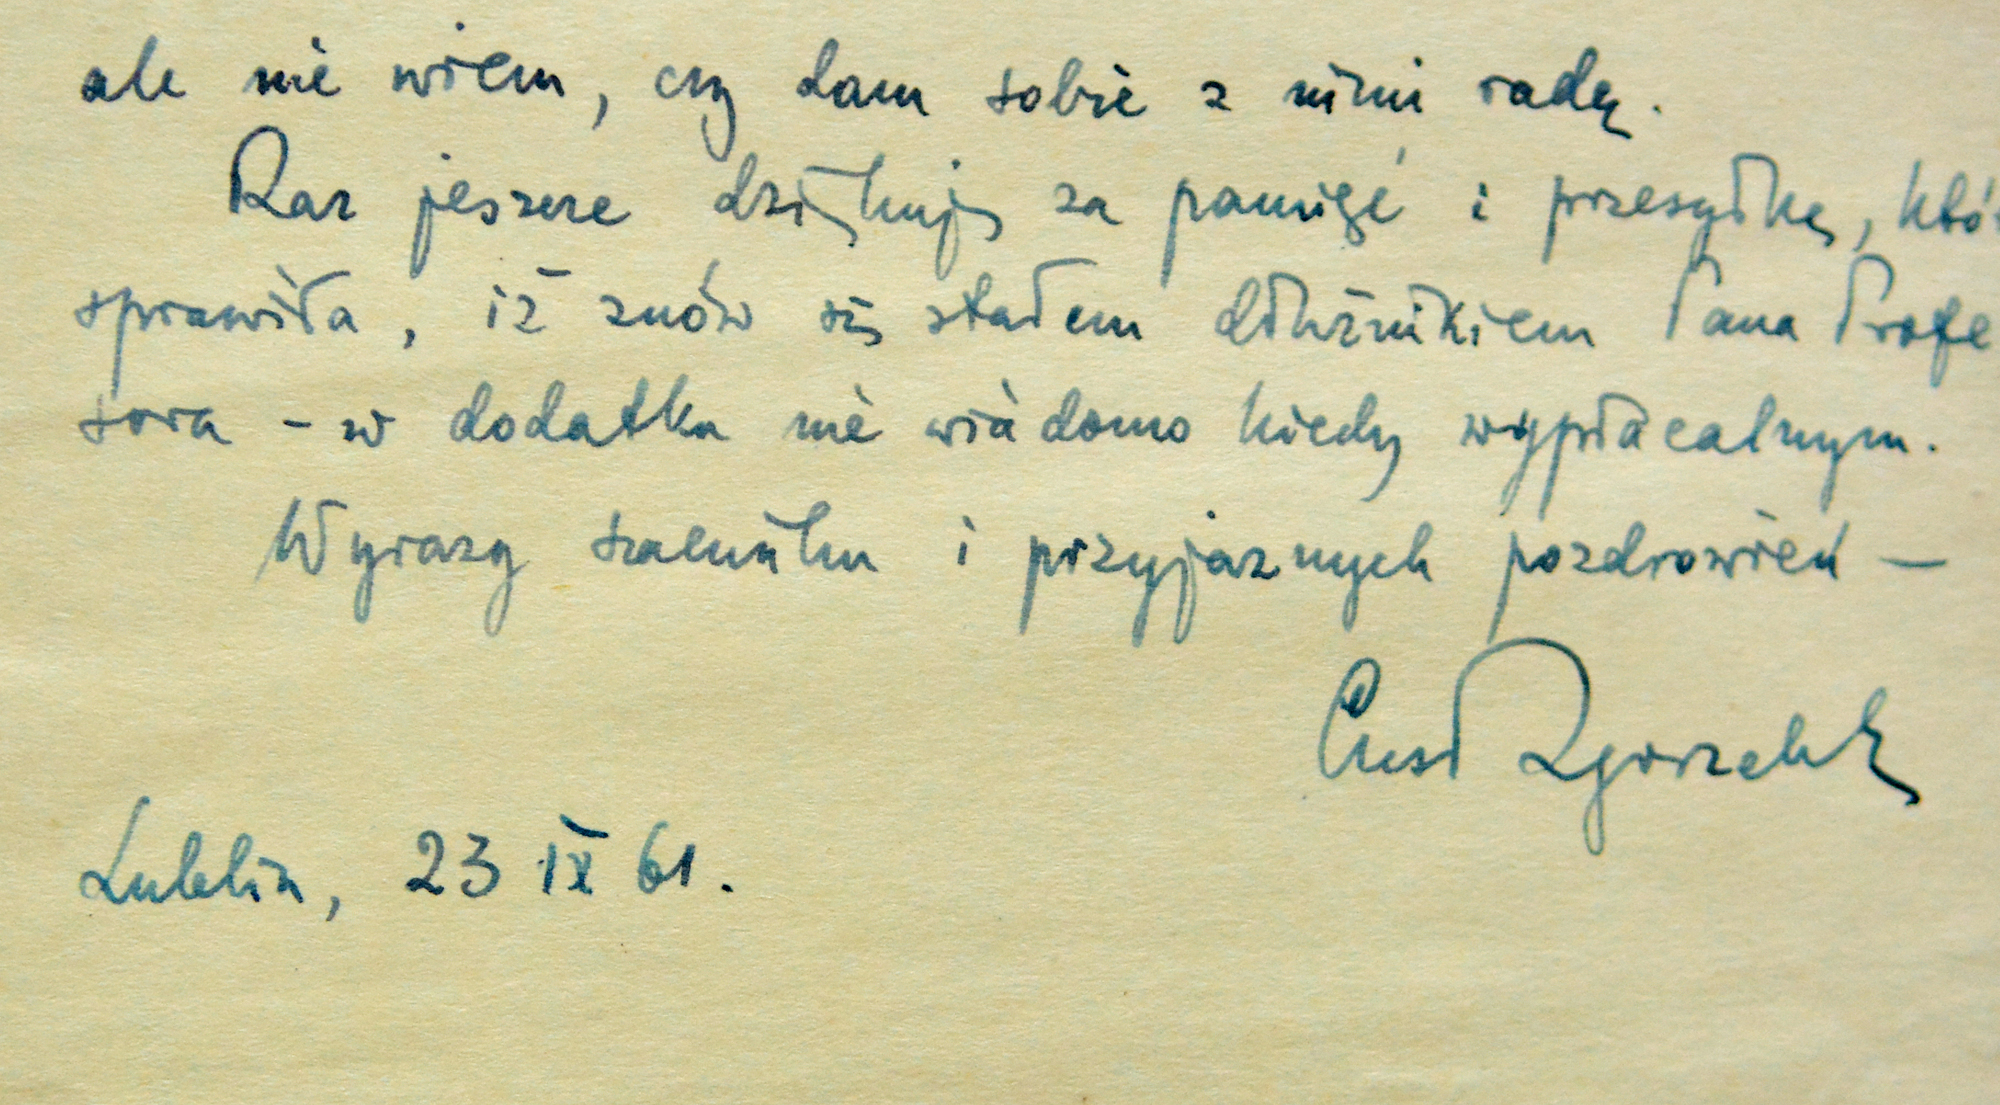 ale nie wiem, czy dam sobie z nimi radę.
Raz jeszcze dziękuję za pamięć i przesyłkę, któ
sprawiła, iż znów się stałem dłużnikiem Pana Profe
sora - w dodatku nie wiadomo kiedy wypłacalnym.
Wyrazy szacunku i przyjaznych pozdrowień —
Czesł Zgorzelsk
Lublin, 23 IX 61.